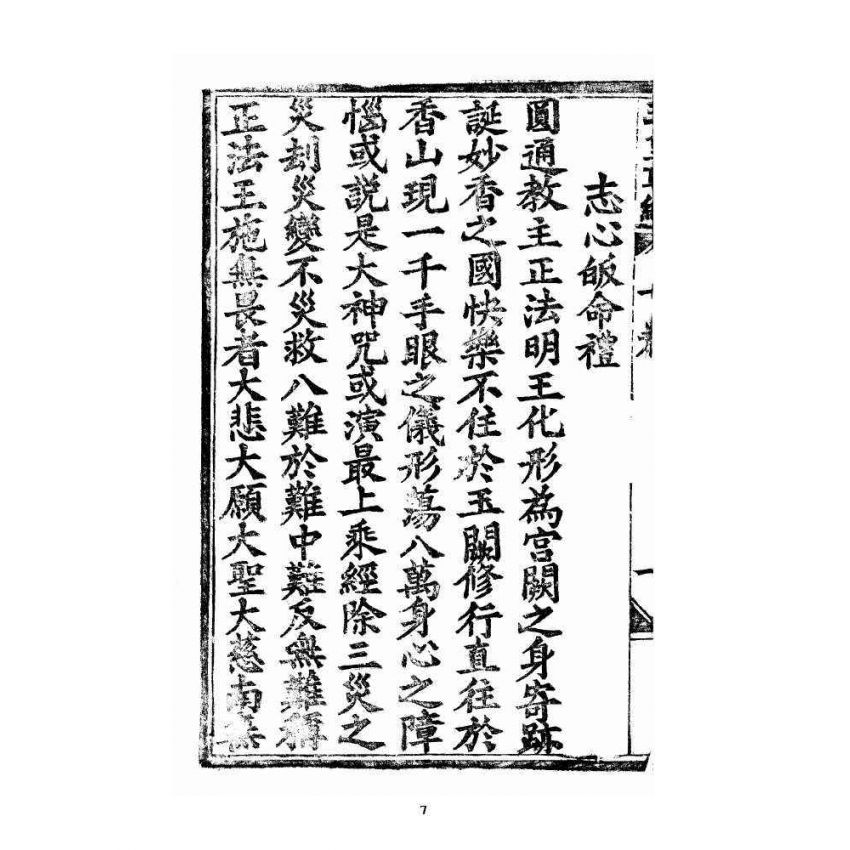 志心皈命禮
圓通教主正法明王化形為宮闕之身寄跡
誕妙香之國快樂不住於玉闕修行直往於
香山現一千手眼之儀形蕩八萬身心之障
惱或説是大神咒或演最上乘經除三災之
災刦災變不災救八難於難中難反無難稱
正法王施無畏者大悲大願大聖大慈南無
7